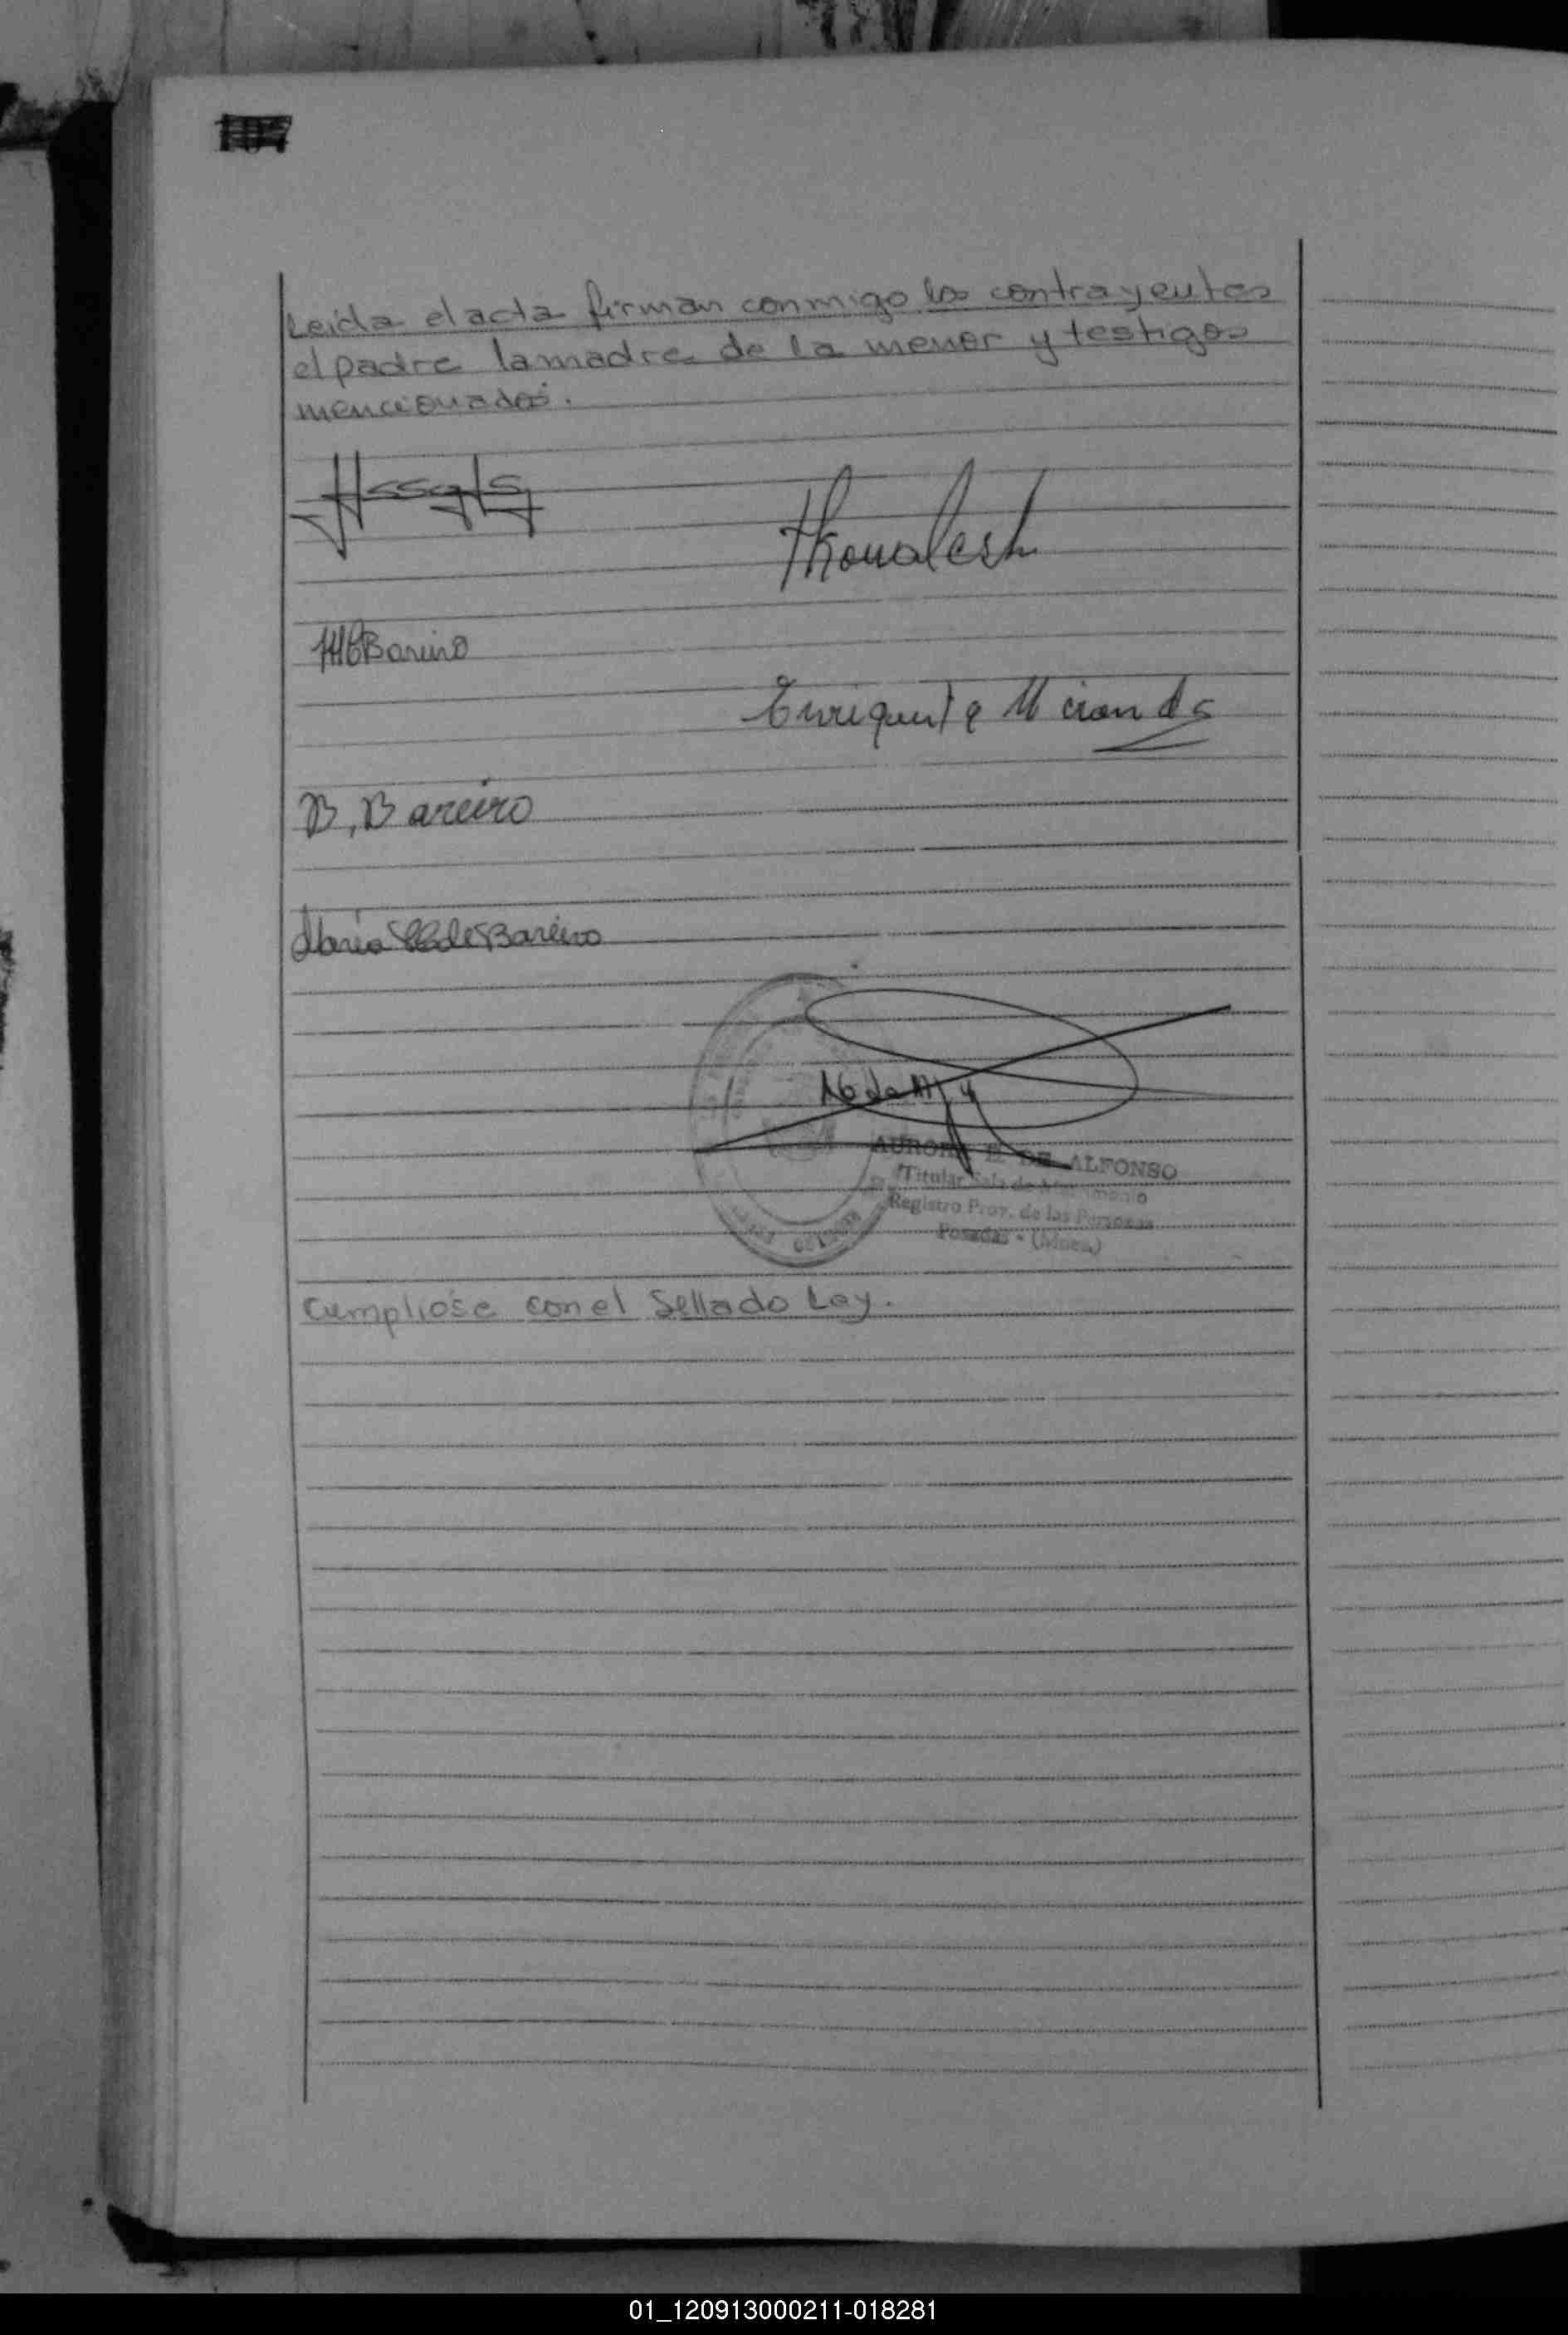 Leida el acta firman conmigo los contrayentes
el padre la madre de la menor y testigos
mencionados.
Bareiro
Enriqueta Miranda
B. Bareiro
Maria de Bareiro
AURORA E. DE ALFONSO
Titular Sala de Matrimonio
Registro Prov. de las Personas
Posadas - (Mnes.)
Cumpliose con el Sellado Ley.
01_120913000211-018281